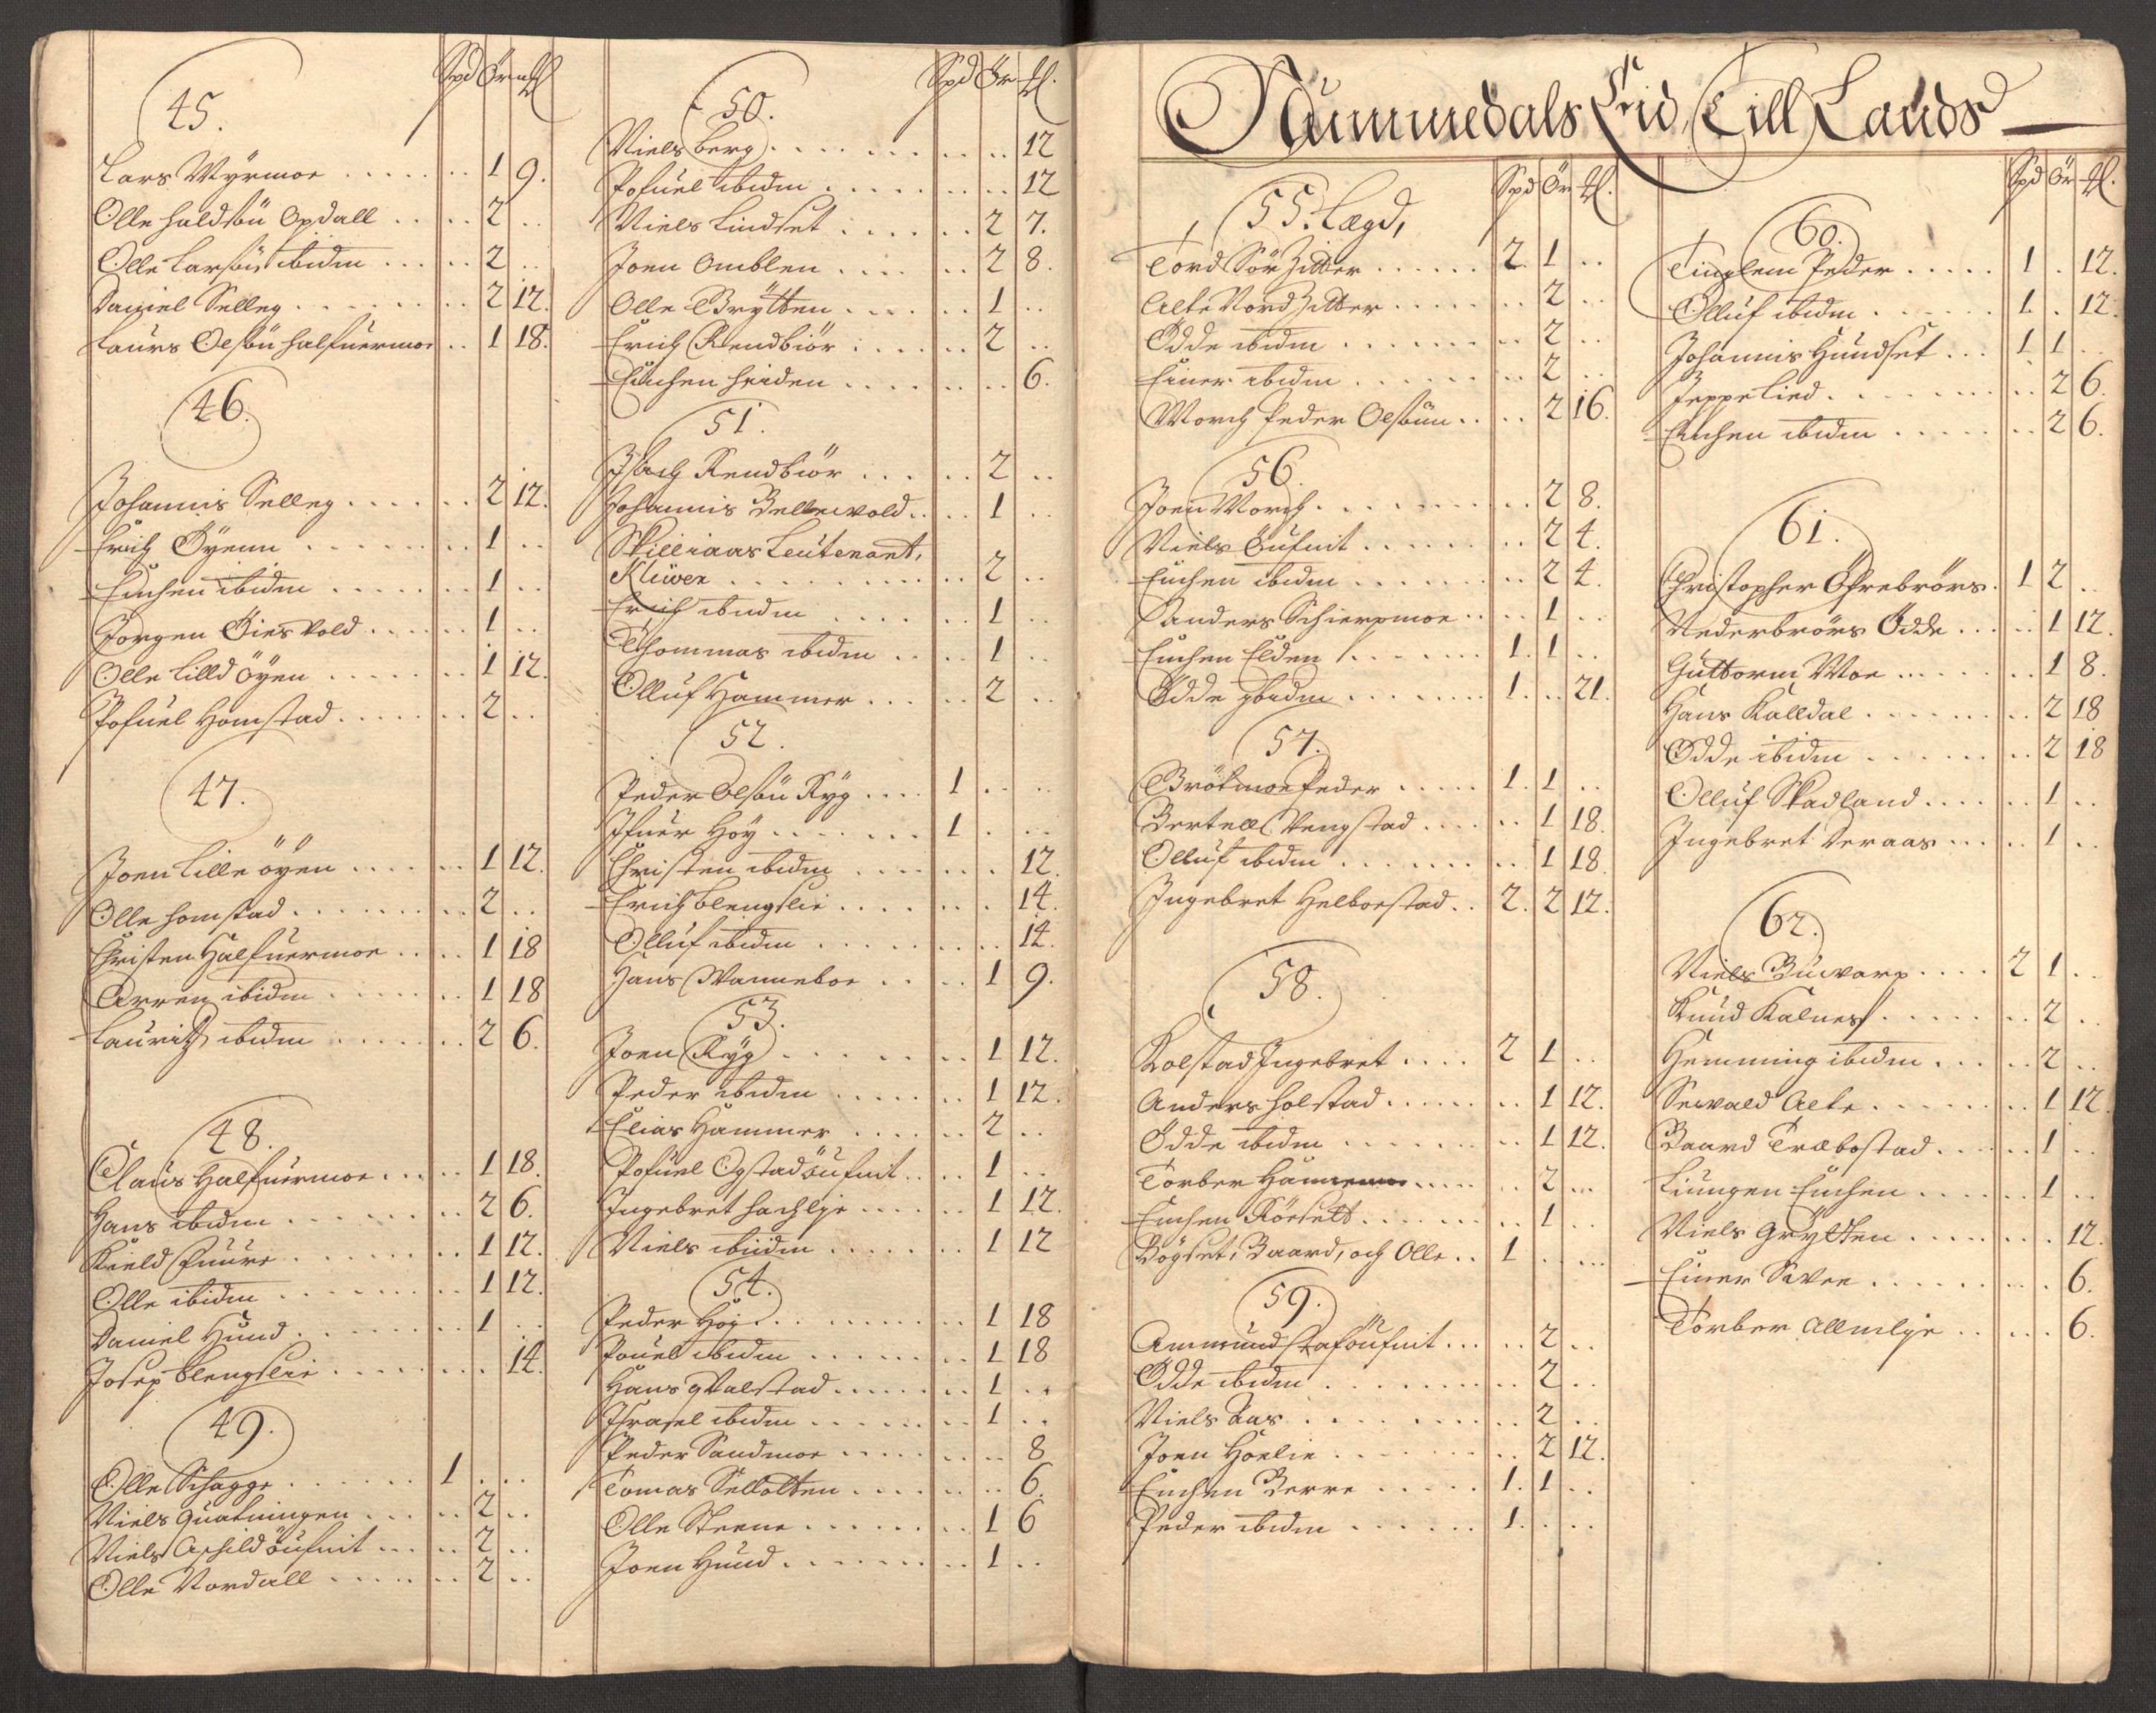 Spd Ör ₥
45.
Lars Myrmoe . . . . . . 1 9.
Olle haldsøn Opdall . . . . 2 . .
Olle Larsøn ibidm . . . . . 2 . .
Daniel Selleg . . . . . . . 2 12.
Laurs Oelsøn halfuermoe . . 1 18.
46.
Johannis Selleg . . . . . . 2 12.
Erich Öyenn . . . . . . . . 1 . .
Enchen ibidm . . . . . . 1 . .
Jörgen Giesvold . . . . . 1 . .
Olle Lilld öyen . . . . . . 1 12.
Pofuel Homstad . . . . . . 2 . .
47.
Joen Lille öyen . . . . . . 1 12.
Olle homstad . . . . . . . . 2 . .
Christen Halfuermoe . . . . 1 18
Arren ibidm . . . . . . . 1 18
Lauritz ibidm . . . . . . . 2 6.
48.
Claus Halfuermoe . . . . . 1 18.
Hans ibidm . . . . . . . . 2 6.
Kield Duure . . . . . . . . 1 12.
Olle ibidm . . . . . . . . 1 12.
Daniel Hund . . . . . . . . 1 . .
Josep Blengslie . . . . . . . 14.
49.
Olle Schagge . . . . . . 1 . . .
Niels Quatningen . . . . . 2 . .
Niels Aphild öufnit . . . . . 2 . .
Olle Nordall . . . . . . . 2 . .
Spd Ör ₥.
50.
Niels Berg . . . . . . . . . . 12
Pofuel ibidm . . . . . . . . . 12
Niels Lindset . . . . . . . 2 7.
Joen Omblen . . . . . . 2 8.
Olle Grytten . . . . . . 1 . .
Erich Rendbiör . . . . . . 2 . .
Enchen hriden . . . . . . . . 6.
51.
Isach Rendbiör . . . . . 2 . .
Johannis Bellewold . . . . 1 . .
Skilliaas Leutenant,
Klüwer . . . . . . . . . . 2 . .
Erich ibidm . . . . . . . 1 . .
Thommas ibidm . . . . 1 . .
Olluf Hammer . . . . . 2 . .
52.
Peder Olsön Ryg . . . . 1 . . .
Ifuer Höy . . . . . . . 1 . . .
Christen ibidm . . . . . . . 12.
Erich Blengslie . . . . . . . 14.
Olluf ibidm . . . . . . . . . 14.
Hans Wanneboe . . . . . 1 9.
53.
Joen Ryg . . . . . . . . 1 12.
Peder ibidm . . . . . . . 1 12.
Elias Hammer . . . . . . 2 . .
Pofuel Ogstad öufnit . . . . 1 . .
Ingebret hachlye . . . . . . 1 12.
Niels ibidm . . . . . . . . 1 12
54.
Peder Höy . . . . . . . . . 1 18
Pouel ibidm . . . . . . . . 1 18
Hans qvalstad . . . . . . . 1 . .
Isrásel ibidm . . . . . . . 1 . .
Peder Sandmoe . . . . . . . . 8
Tomas Selletten . . . . . . . . 6.
Olle Steene . . . . . . . . 1 6
Joen Hund . . . . . . . . . 1 . .
Nummedals Frid, Till Lands
Spd Ör ₥.
55. Lægd,
Tord Sör Zitter . . . . . . 2. 1 . .
Alte Nord Zitter . . . . . . . 2 . .
Ödde ibidm . . . . . . . . . 2 . .
Einer ibidm . . . . . . . . . 2 . .
Morch Peder Oelsönn . . . . 2 16.
56.
Joen Morch . . . . . . . . . 2 8.
Niels Öufnit . . . . . . . . 2 4.
Enchen ibidm . . . . . . . . 2 4.
Anders Schierpmoe . . . . 1 . .
Enchen Elden . . . . . . 1. 1 . .
Ödde ibidm . . . . . . . 1. . . 21.
57.
Brötmoe Peder . . . . . 1. 1 . .
Bertell Vengstad . . . . . . 1 18.
Olluf ibidm . . . . . . . . . 1 18.
Ingebret Helboestad . . 2. 2 12.
58.
Kolstad Ingebret . . . . 2 1 . .
Anders holstad . . . . . . . 1 12.
Ödde ibidm . . . . . . . . . 1 12.
Torber . . . . . 2 . . .
Enchen Rörselt . . . . . . . . 1 . .
Bögset, Baard, och Olle . . 1 . . . .
59.
Ammund Staföufnit . . . . . 2 . .
Ödde ibidm . . . . . . . . . 2 . .
Niels Aas . . . . . . . . . . 2 . .
Joen Hoelie . . . . . . . . . 2 12.
Enchen Berre . . . . . . 1. 1 . .
Peder ibidm . . . . . . 1. . . .
Spd Ör ₥.
60.
Tinglem Peder . . . . . 1 . 12.
Olluf ibidm . . . . . . . 1. . 12.
Johannis Hundset . . . 1 1 . .
Jeppe Lied . . . . . . . . . 2 6.
Enchen ibidm . . . . . . . 2 6.
61.
Christopher Öfrebrörs . 1 2 . .
Nederbrörs Ödde . . . . . 1 12.
Guttorm Moe . . . . . . . . 1 8.
Hans Kalldal . . . . . . . . 2 18
Ödde ibidm . . . . . . . . 2 18
Olluf Skadland . . . . . . 1 . .
Ingebret Deraas . . . . . 1 . .
62.
Niels Buwarp . . . . 2 1 . .
Knud Kalnesf . . . . . . . 2 . .
Hemming ibidm . . . . . 2 . .
Sewald Alte . . . . . . . . 1 12.
Baard Træbostad . . . . . 1 . .
Liungen Enchen . . . . . . 1 . .
Niels Grytten . . . . . . . . 12.
Einer Saven . . . . . . . . . 6.
Torber Allmlye . . . . . . 6.